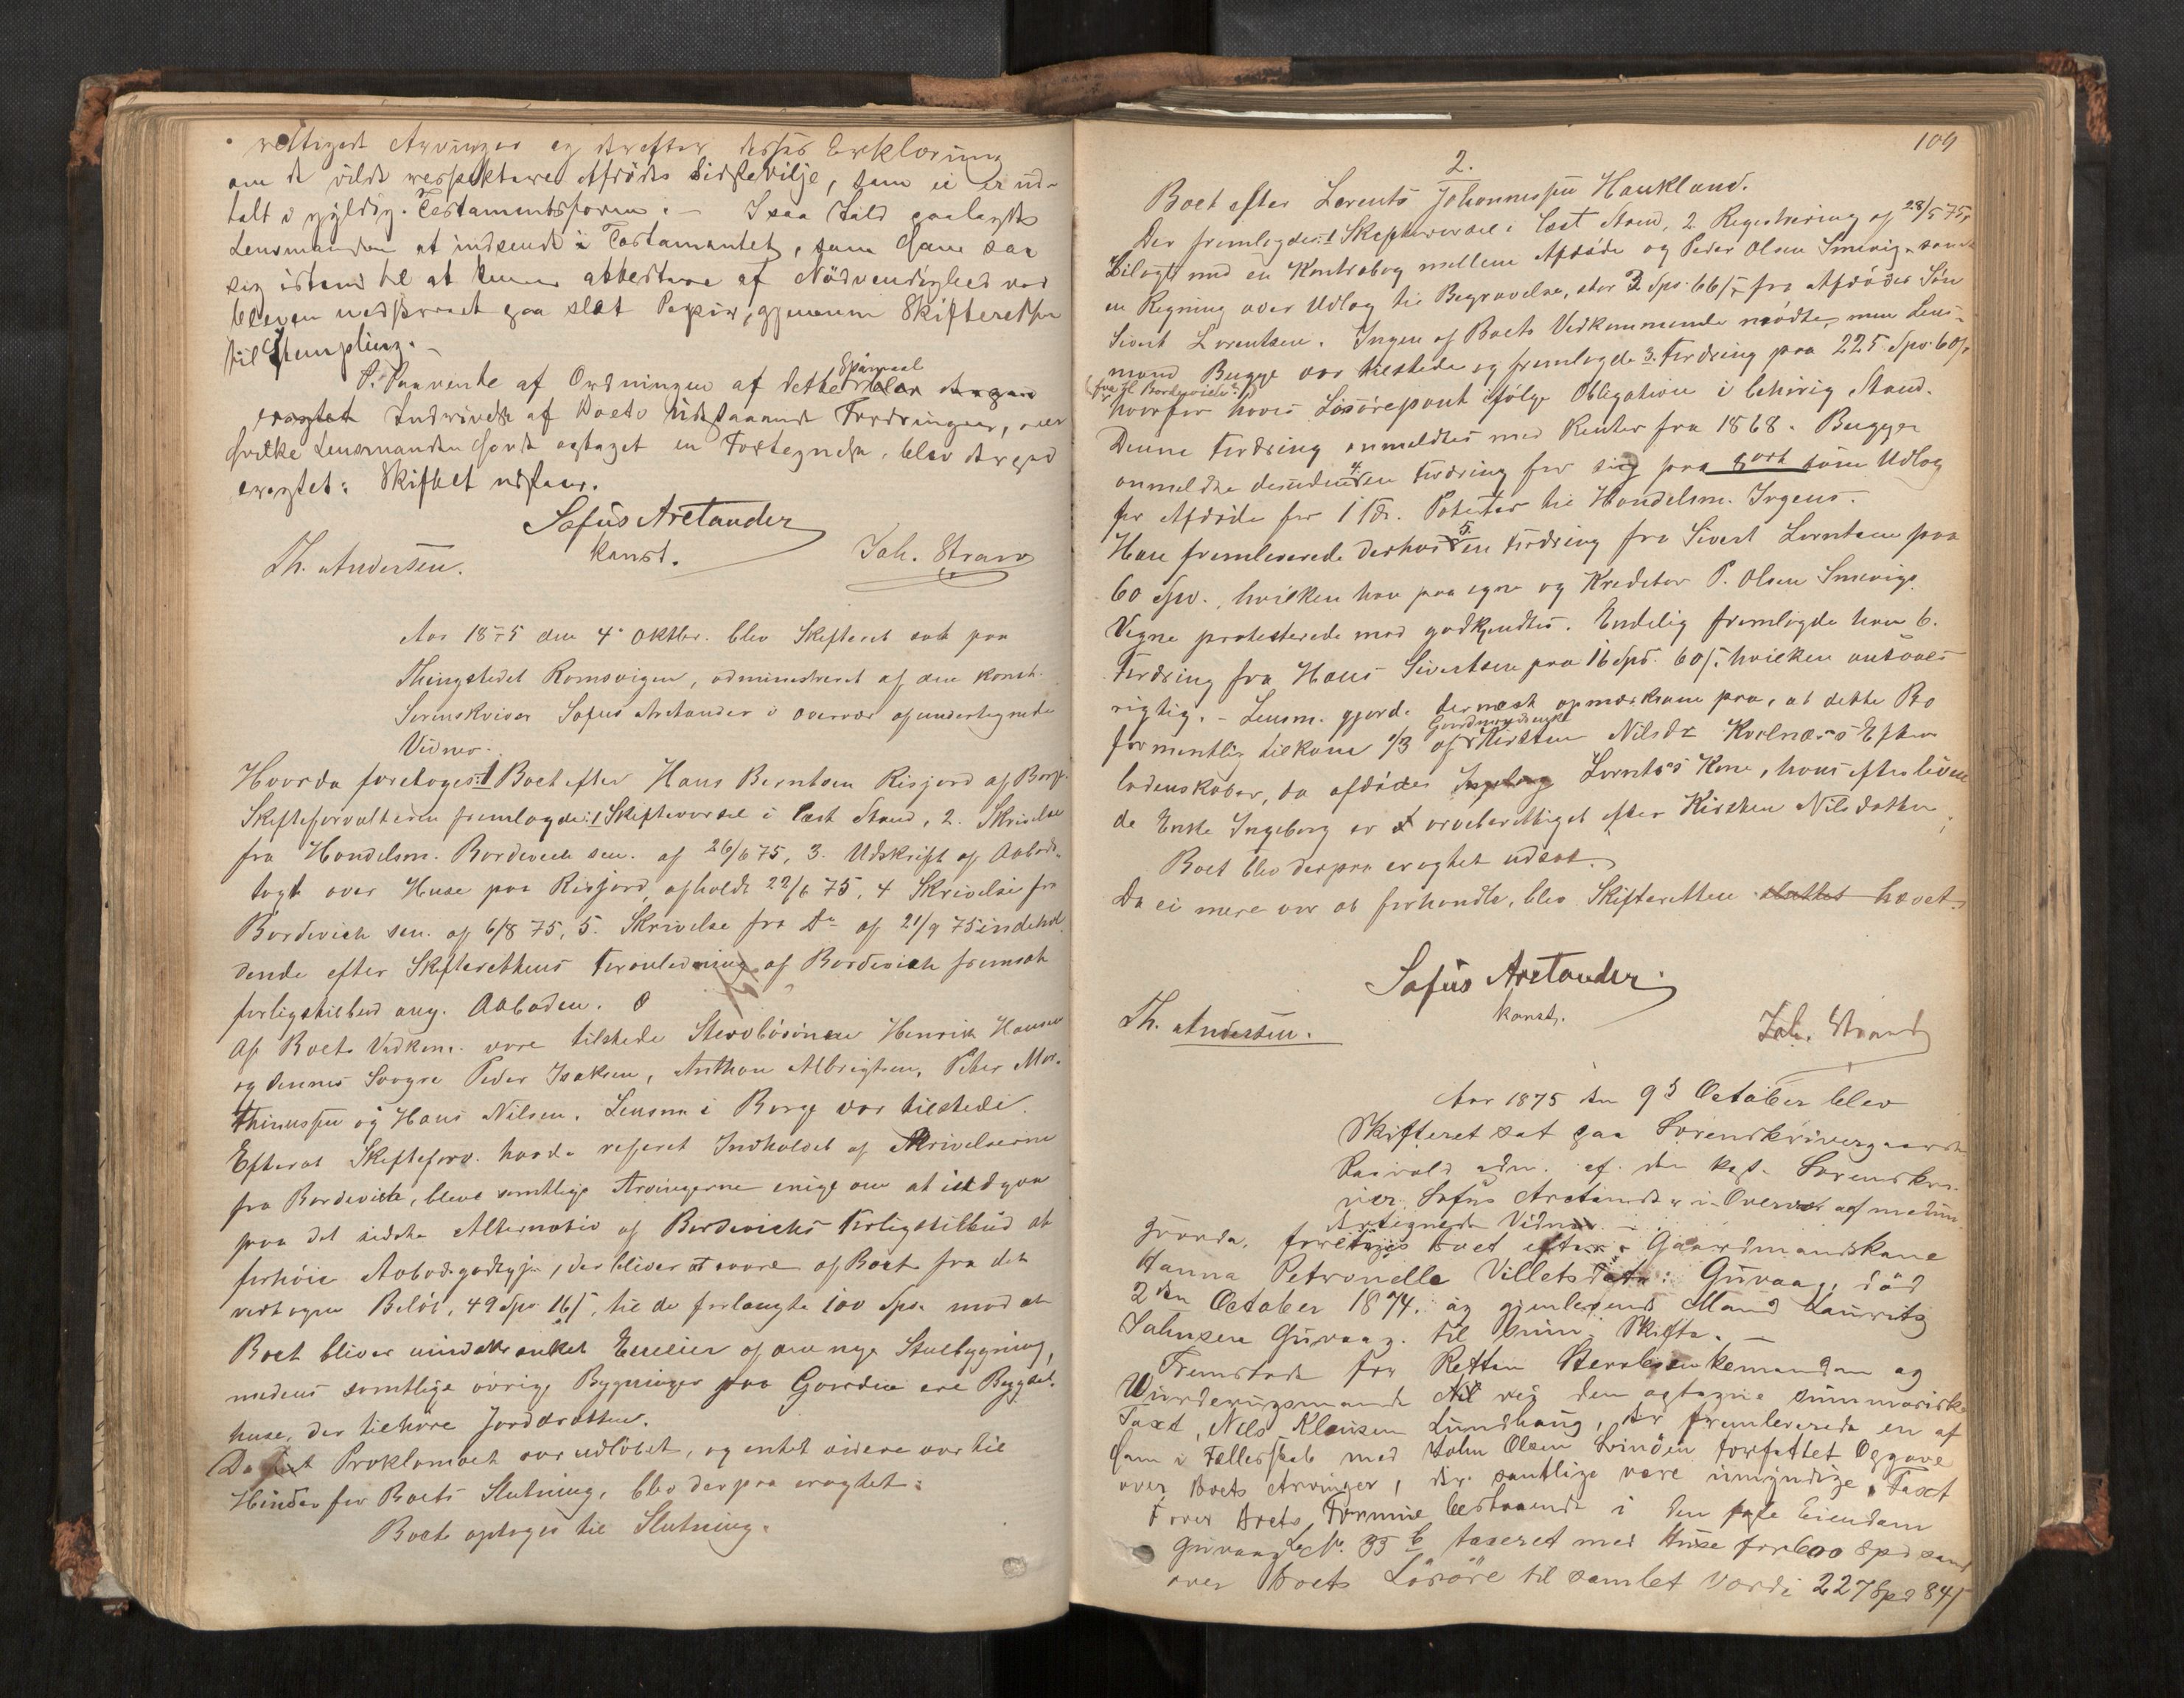 rettiget Arvinger og derefter disses Erklæring
om de vilde respektere Afdødes Sidstevilje, som ei er ud-
talt i gyldig Testamentsform. — I saa Fald paalagdes
Lensmanden at indsende i Testamentet, som han saa
sig istand til at kunne attestere af Nödvendighed var
bleven nedskrevet paa slet Papir, gjennem Skifteretten
til Stempling. —
P. Paavente af Ordningen af dette Spörsmaal
Inddrivelse af Boets udestaaende Fordringer, over
hvilke Lensmanden havde optaget en Fortegnelse, blev derpaa
eragtet: Skiftet udstaar.
Sofus Arctander
konst.
Th. Andersen.
Joh. Strand
Aar 1875 den 4. Oktbr. blev Skifteret sat paa
Thingstedet Ramsvigen, administreret af den konst.
Sorenskriver Sofus Arctander i Overvær af undertegnede
Vidner.
Hvorda foretoges: 1 Boet efter Hans Berntsen Risjord af Borge.
Skifteforvalteren fremlagde: 1 Skiftevarsel i læst Stand, 2. Skrivelse
fra Handelsm. Bordevich sen. af 26/6 75, 3. Udskrift af Aabods-
tagt over Huse paa Risjord, afholdt 22/6 75, 4 Skrivelse fra
Bordevich sen. af 6/8 75, 5. Skrivelse fra Do af 21/9 75 indehol-
dende efter Skifterettens Foranledning af Bordevich fremsat
forligstilbud ang. Aaboden.
Af Boets Vedkom. vare tilstede Stervbösönnen Henrik Hansen
og dennes Svogre Peder Isaksen, Anthon Albrigtsen, Peter Mor-
thinussen og Hans Nilsen. Lensm. i Borge var tilstede.
Efterat Skifteforv. havde refereret Indholdet af Skrivelserne
fra Bordevich, bleve samtlige Arvingerne enige om at indgaa
paa det sidste Alternativ af Bordevichs Forligstilbud at
forhöie Aabodsgodtgj., der bliver at svare af Boet fra det
vedtagne Belöb, 49 Spd. 16 ß, til de forlangte 100 Spd. mod at
Boet bliver uindskrænket Eneeier af den nye Stuebygning,
medens samtlige övrige Bygninger paa Gaarden ere Bygsel-
huse, der tilhöre Jorddrotten.
Da Proklamaet var udlöbet, og intet videre var til
Hinder for Boets Slutning, blev derpaa eragtet:
Boet optages til Slutning.
109
2.
Boet efter Lorents Johannessen Haukland.
Der fremlagdes: 1 Skiftevarsel i læst Stand, 2. Registrering af 28/5 75,
bilagt med en Kontrabog mellem Afdöde og Peder Olsen Smevig samt
en Regning over Udlæg til Begravelse, stor 3 Spd. 66 ß, fra Afdödes Sön
Sivert Lorentsen. Ingen af Boets Vedkommende mödte, men Lens-
mand Bugge var tilstede og fremlagde 3. Fordring paa 225 Spd. 60 ß
fra H. Bordevich
hvorfor haves Lösörepant ifölge Obligation i behörig Stand.
Denne Fordring anmeldtes med Renter fra 1868. Bugge
anmeldte desuden 4. en Fordring for sig paa 8 ort som Udlæg
for Afdöde for 1 Td. Poteter til Handelsm. Irgens.
Han fremleverede derhos 5. en Fordring fra Sivert Lorntsen paa
60 Spd., hvilken han paa egne og Kreditor P. Olsen Smevigs
Vegne protesterede mod godkjendtes. Endelig fremlagde han 6.
Fordring fra Hans Sivertsen paa 16 Spd. 60 ß, hvilken ansaaes
rigtig. — Lensm. gjorde dernæst opmærksom paa, at dette Bo
formentlig tilkom 1/3 af Gaardmandsenke Kirsten Nilsdr. Kvelnæss Efter-
ladenskaber, da afdödes Ingeborg Lornts's Kone, hans efterleven-
de Enke Ingeborg er arveberettiget efter Kirsten Nilsdatter.
Boet blev derpaa eragtet udsat.
Da ei mere var at forhandle, blev Skifteretten sluttet hævet.
Sofus Arctander
konst.
Th. Andersen.
Joh. Strand
Aar 1875 den 9d October blev
Skifteret sat paa Sorenskrivergaarden
adm. af den kst. Sorenskri-
ver Sofus Arctander i Overvær af medun-
dertegnede Vidner.
Hvorda foretoges Boet efter Gaardmandskone
Hanna Petronelle Villetsdatr. Gurvaag, död
2den October 1874 og gjenlevende Mand Lauritz
Johnsen Gurvaag til Skifte. —
Fremstod for Retten Stervboenkemanden og
Vurderingsmand ved den optagne summariske
Taxt, Nels Klausen Lundhaug, der fremleverede en af
ham i Fællesskab med John Olsen forfattet Opgave
over Boets Arvinger, der samtlige vare umyndige, Taxt
over Boets Formue bestaaende i den faste Eiendom
Gurvaag L. No. 33 b taxeret med Huse for 600 Spd samt
over Boets Lösöre til samlet Værdi 227 Spd 84 ß